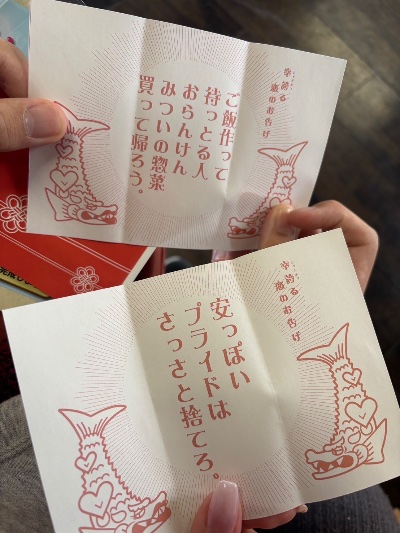 のお告げ
ご飯作って
待っとる人
おらんけん
みついの惣菜
買って帰ろう。
のお告げ
安っぽい
プライドは
さっさと捨てろ。